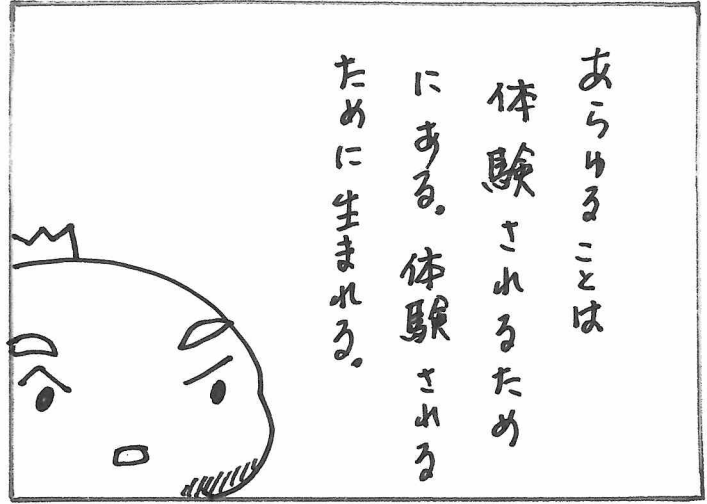 あらゆることは
体験されるため
にある。体験される
ために生まれる。